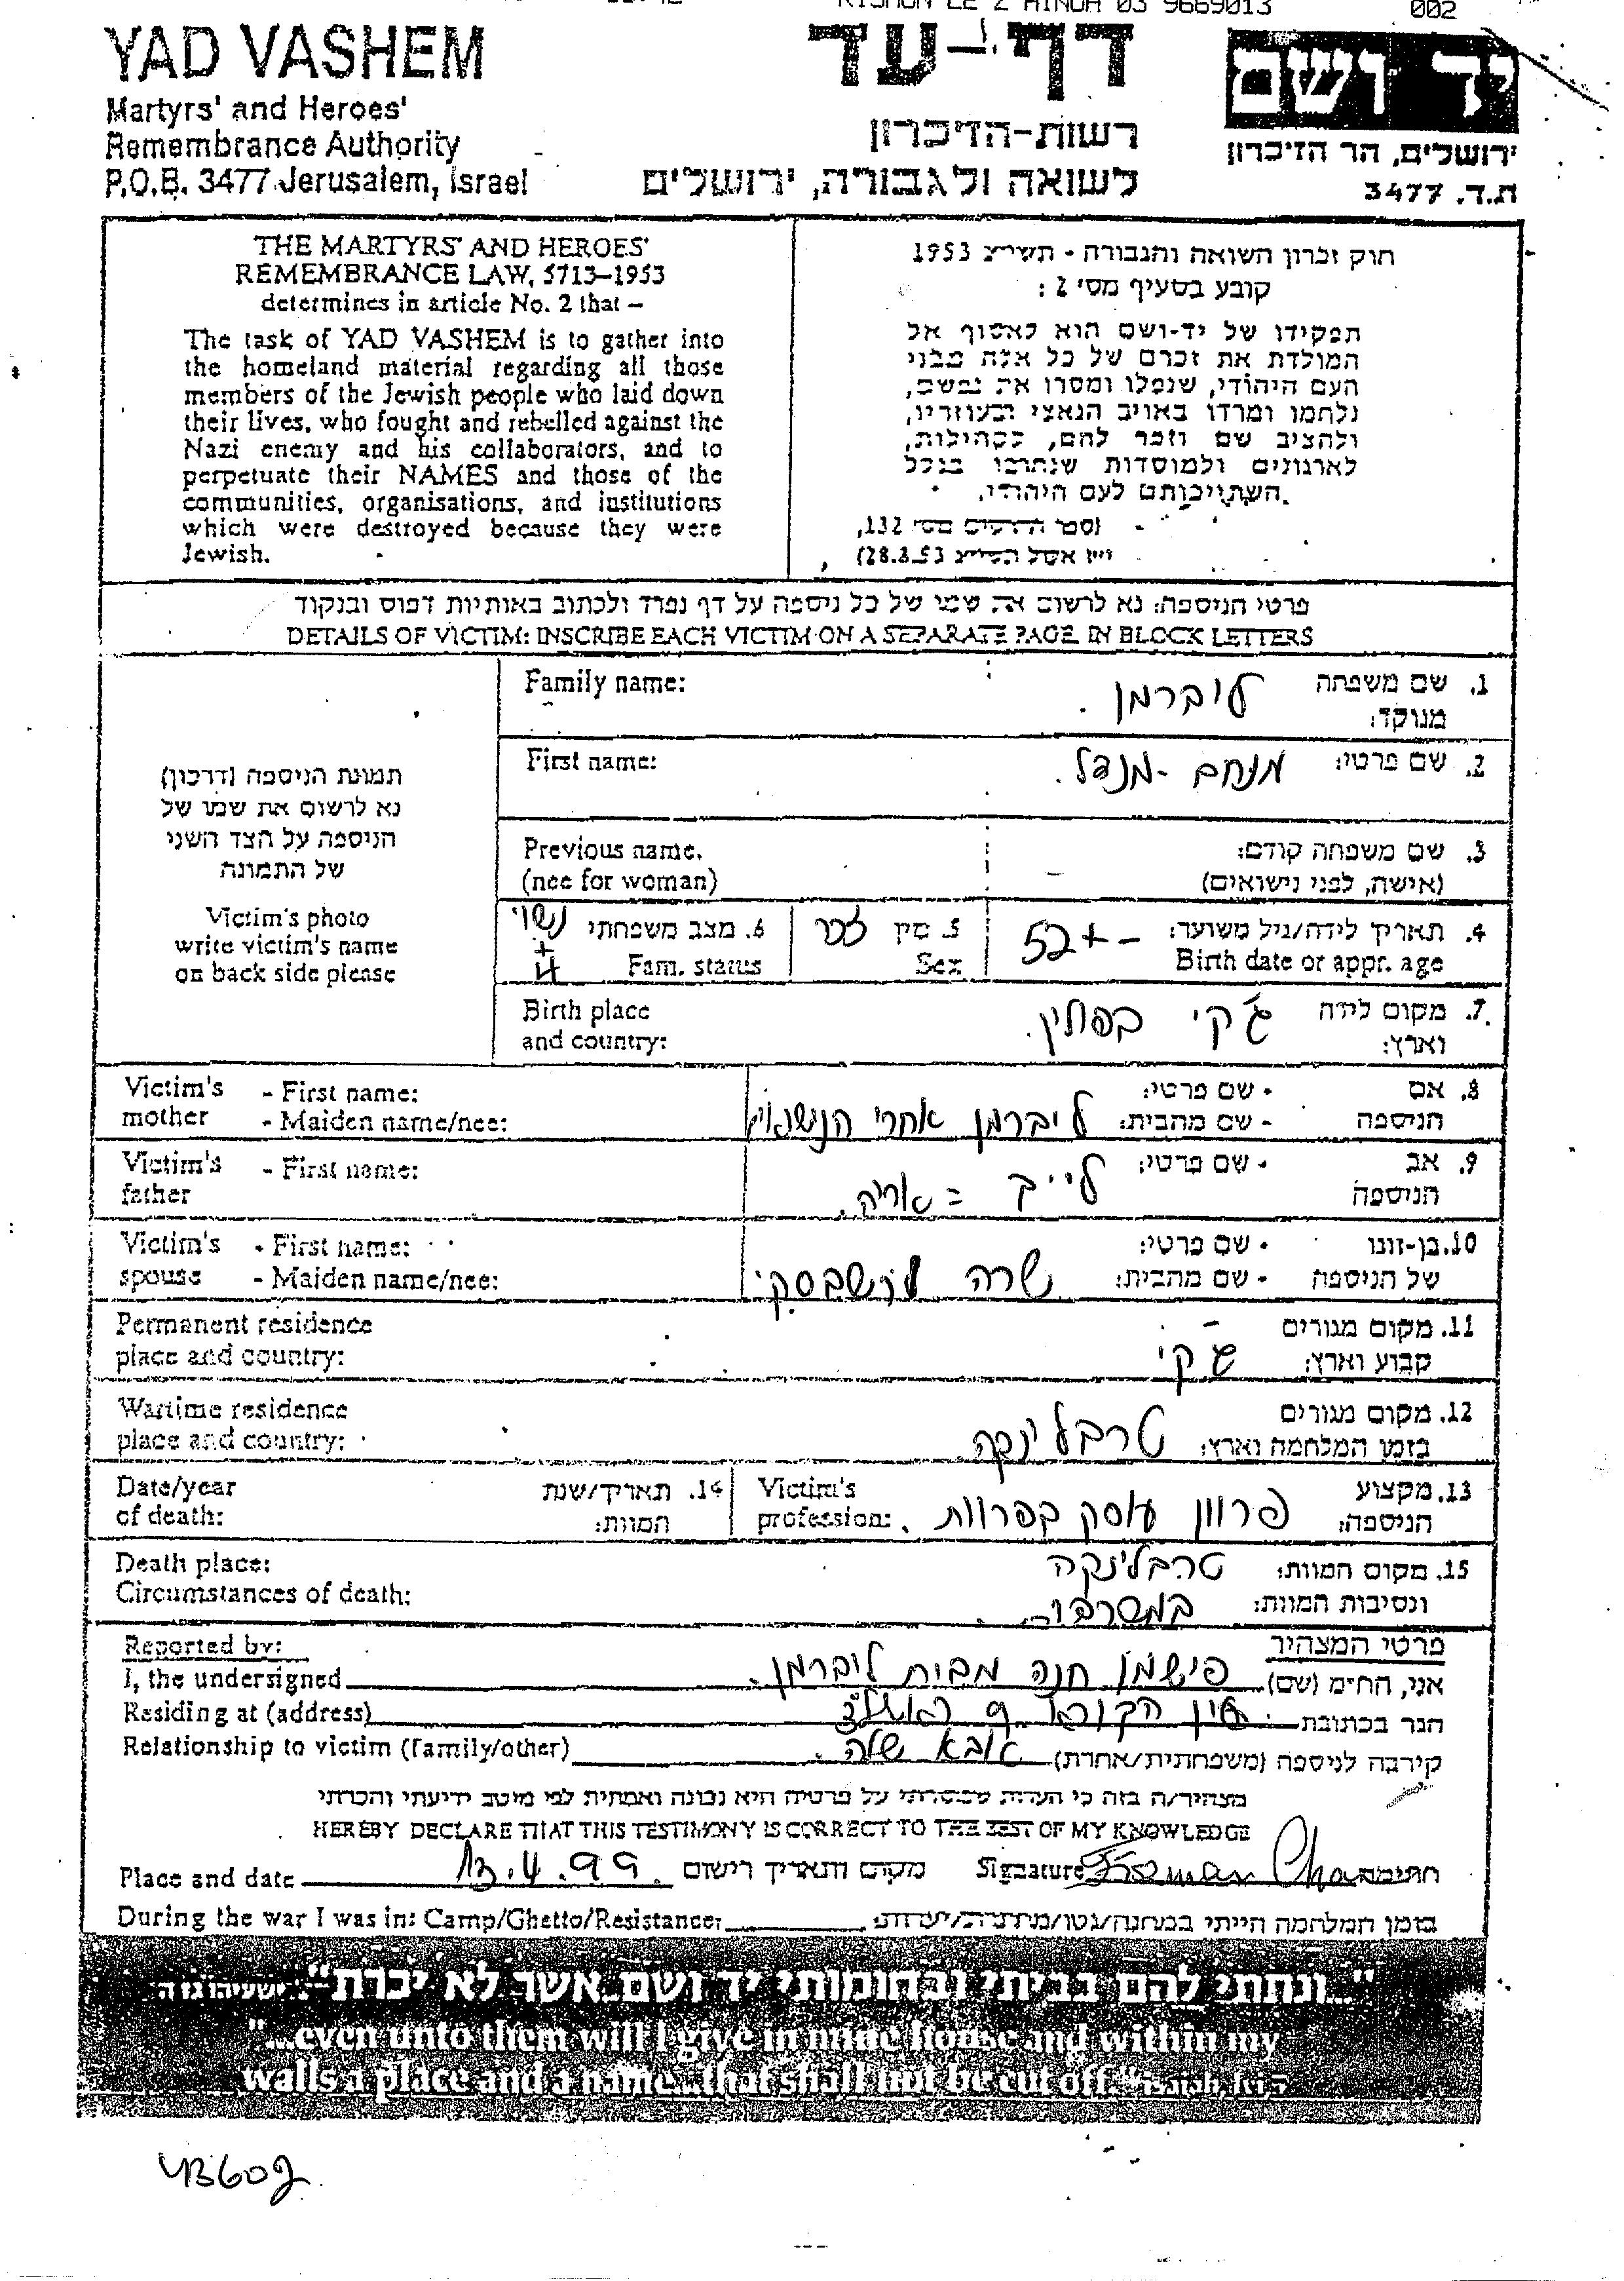 RISHON LE Z HINUH 03 9669013 002
YAD VASHEM
Martyrs' and Heroes'
Remembrance Authority
P.O.B. 3477 Jerusalem, Israel
דף-עד
רשות-הזיכרון
לשואה ולגבורה, ירושלים
יד ושם
ירושלים, הר הזיכרון
ת.ד. 3477
THE MARTYRS' AND HEROES'
REMEMBRANCE LAW, 5713-1953
determines in article No. 2 that –
The task of YAD VASHEM is to gather into
the homeland material regarding all those
members of the Jewish people who laid down
their lives, who fought and rebelled against the
Nazi enemy and his collaborators, and to
perpetuate their NAMES and those of the
communities, organisations, and institutions
which were destroyed because they were
Jewish.
חוק זכרון השואה והגבורה - תשי"ג 1953
קובע בסעיף מס' 2:
תפקידו של יד-ושם הוא לאסוף אל
המולדת את זכרם של כל אלה מבני
העם היהודי, שנפלו ומסרו את נפשם,
נלחמו ומרדו באויב הנאצי ובעוזריו,
ולהציב שם וזכר להם, לקהילות,
לארגונים ולמוסדות שנחרבו בגלל
השתייכותם לעם היהודי.
(ספר החוקים מס' 132,
28.8.53)
פרטי הניספה: נא לרשום את שמו של כל ניספה על דף נפרד ולכתוב באותיות דפוס ובנקוד
DETAILS OF VICTIM: INSCRIBE EACH VICTIM ON A SEPARATE PAGE IN BLOCK LETTERS
תמונת הניספה (דרכון)
נא לרשום את שמו של
הניספה על הצד השני
של התמונה
Victim's photo
write victim's name
on back side please
Family name: ליברמן . 1. שם משפחה
מנוקד:
First name: מנחם - מנדל . 2. שם פרטי:
Previous name, 3. שם משפחה קודם:
(nee for woman) – (אישה, לפני נישואים)
נשוי 6. מצב משפחתי זכר 5. מין 52+- 4. תאריך לידה/גיל משוער:
+4 Fam. status Sex Birth date or appr. age
Birth place בפולין. 7. מקום לידה
and country: וארץ:
Victim's - First name: - שם פרטי: 8. אם
mother - Maiden name/nee: ליברמן אחרי הנשואין - שם מהבית: הניספה
Victim's - First name: לייב = אריה. - שם פרטי: 9. אב
father הניספה
Victim's - First name: - שם פרטי: 10. בן-זוגו
spouse - Maiden name/nee: שרה - שם מהבית: של הניספה
Permanent residence 11. מקום מגורים
place and country: קבוע וארץ:
Wartime residence 12. מקום מגורים
place and country: טרבלינקה בזמן המלחמה וארץ:
Date/year 14. תאריך/שנת Victim's 13. מקצוע
of death: המוות: profession: פרוון עוסק בפרוות . הניספה:
Death place: טרבלינקה 15. מקום המוות:
Circumstances of death: במשרפו ונסיבות המוות:
Reported by: פרטי המצהיר
I, the undersigned פישמן חנה מבית ליברמן. אני, הח"מ (שם)
Residing at (address) עין הקורא 9 ראשל"צ הגר בכתובת
Relationship to victim (family/other) אבא שלה . קירבה לניספה (משפחתית/אחרת)
מצהיר/ה בזה כי העדות שמסרתי על פרטיה היא נכונה ואמתית לפי מיטב ידיעתי והכרתי
HEREBY DECLARE THAT THIS TESTIMONY IS CORRECT TO THE BEST OF MY KNOWLEDGE
Place and date 13.4.99. מקום ותאריך רישום Signature Fiszman Chana חתימה
During the war I was in: Camp/Ghetto/Resistance: בזמן המלחמה הייתי במחנה/גטו/מחתרת/יערות:
"...ונתתי להם בביתי ובחומותי יד ושם... אשר לא יכרת" ישעיהו נו ה
"...even unto them will I give in mine house and within my
walls a place and a name...that shall not be cut off." Isaiah, lvi, 5
43602